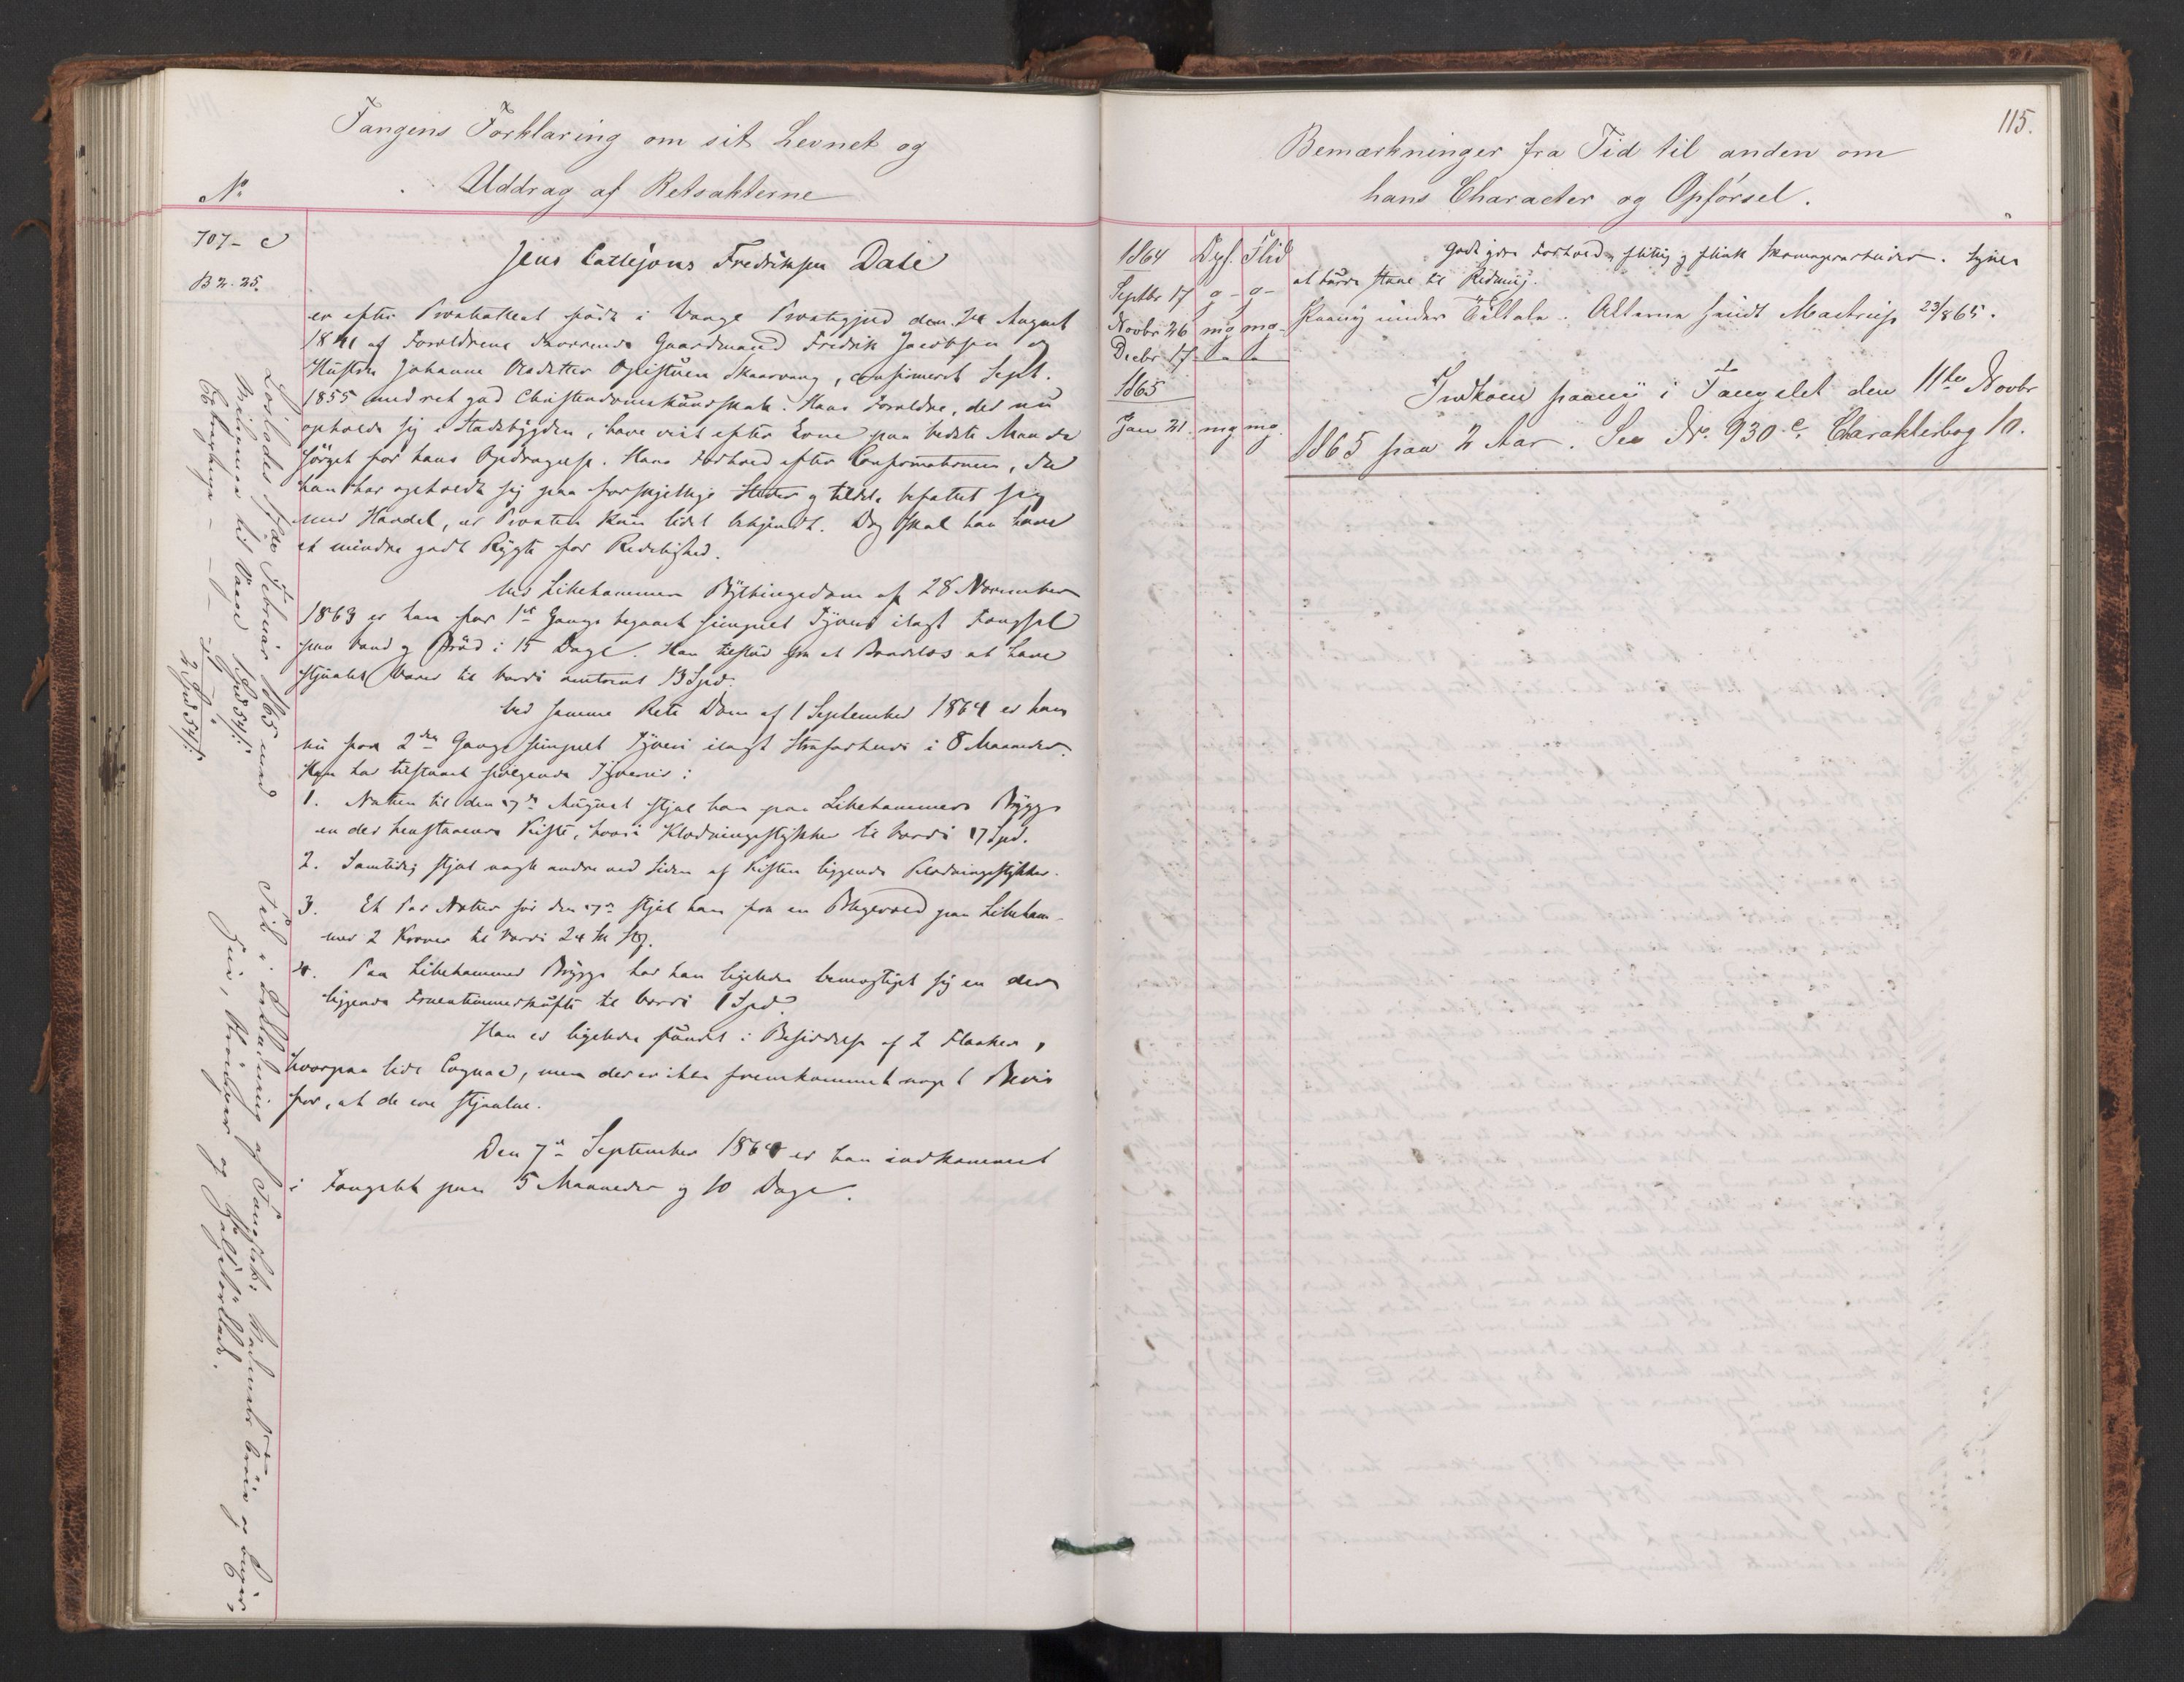 Fangens Forklaring om sit Levnet og
Uddrag af Retsakterne
No
707- c
B 2. 25.
Jens Fredriksen Dale
er efter Præsteattest født i Vaage Præstegjeld den August
1841 af Forældrene Gaardmand Fredrik Jacobsen og
Hustru Johanne Skaarvang, confirmeret Sept.
1855 med ret god Christendomskundskab. Hans Forældre, der nu
opholde sig i Stadsbygden, have vist efter Evne paa bedste Maade
sørget for hans Opdragelse. Hans Forhold efter Confirmationen, da
han har opholdt sig paa forskjellige Steder og tildels befattet sig
med Handel, er Præsten kun lidet bekjendt. Dog skal han have
et mindre godt Rygte for Redelighed.
Ved Lillehammers Bythingsdom af 28 November
1863 er han for 1ste Gang begaaet simpelt Tyveri ilagt Fængsel
paa Vand og Brød i 15 Dage. Han tilstod fra et at have
stjaalet Varer til Værdi omtrent 13 Spd.
Ved samme Rets Dom af 1 September 1864 er han
nu for 2den Gang simpelt Tyveri ilagt Strafarbeide i 8 Maaneder.
Han har tilstaaet følgende Tyverier:
1. Natten til den 7de August stjal han paa Lillehammers Brygge
en der henstaaende Kiste, hvori Klædningsstykker til Værdi 17 Spd.
2. Samtidig stjal nogle andre ved Siden af Kisten liggende Klædningsstykker.
3. Et Par Nætter før den 7de stjal han fra en paa Lilleham-
mer 2 til Værdi 24 Sk
4. Paa Lillehammers Brygge har han ligeledes bemægtiget sig en der
liggende Fruentimmerkufte til Værdi 1 Spd.
Han er ligeledes fundet i Besiddelse af 2 Flasker,
hvorpaa lidt Cognac, men der er ikke fremkommet noget Bevis
for, at de ere stjaalne.
Den 7de September 1864 er han indkommet
i Fængslet paa 5 Maaneder og 10 Dage.
Løslades Februar 1865 med
til Vaage Spd 54 s:
2 Spd 54 s:
i af Fængslet: og
og
115.
Bemærkninger fra Tid til anden om
hans Character og Opførsel.
1864 Opf. Flid
Septbr 17 g- g-
Novbr 26 mg mg-
Decbr 17
1865
Jan 21. mg mg.
Godt Forhold, flittig og flink Skomagerarbeider. Synes
at
Paany under Tiltale. Akterne sendt 23/8 65.
Indkom paany i Fængslet den 11te Novbr
1865 paa 2 Aar. See No. 930 c. Charakterbog 10.